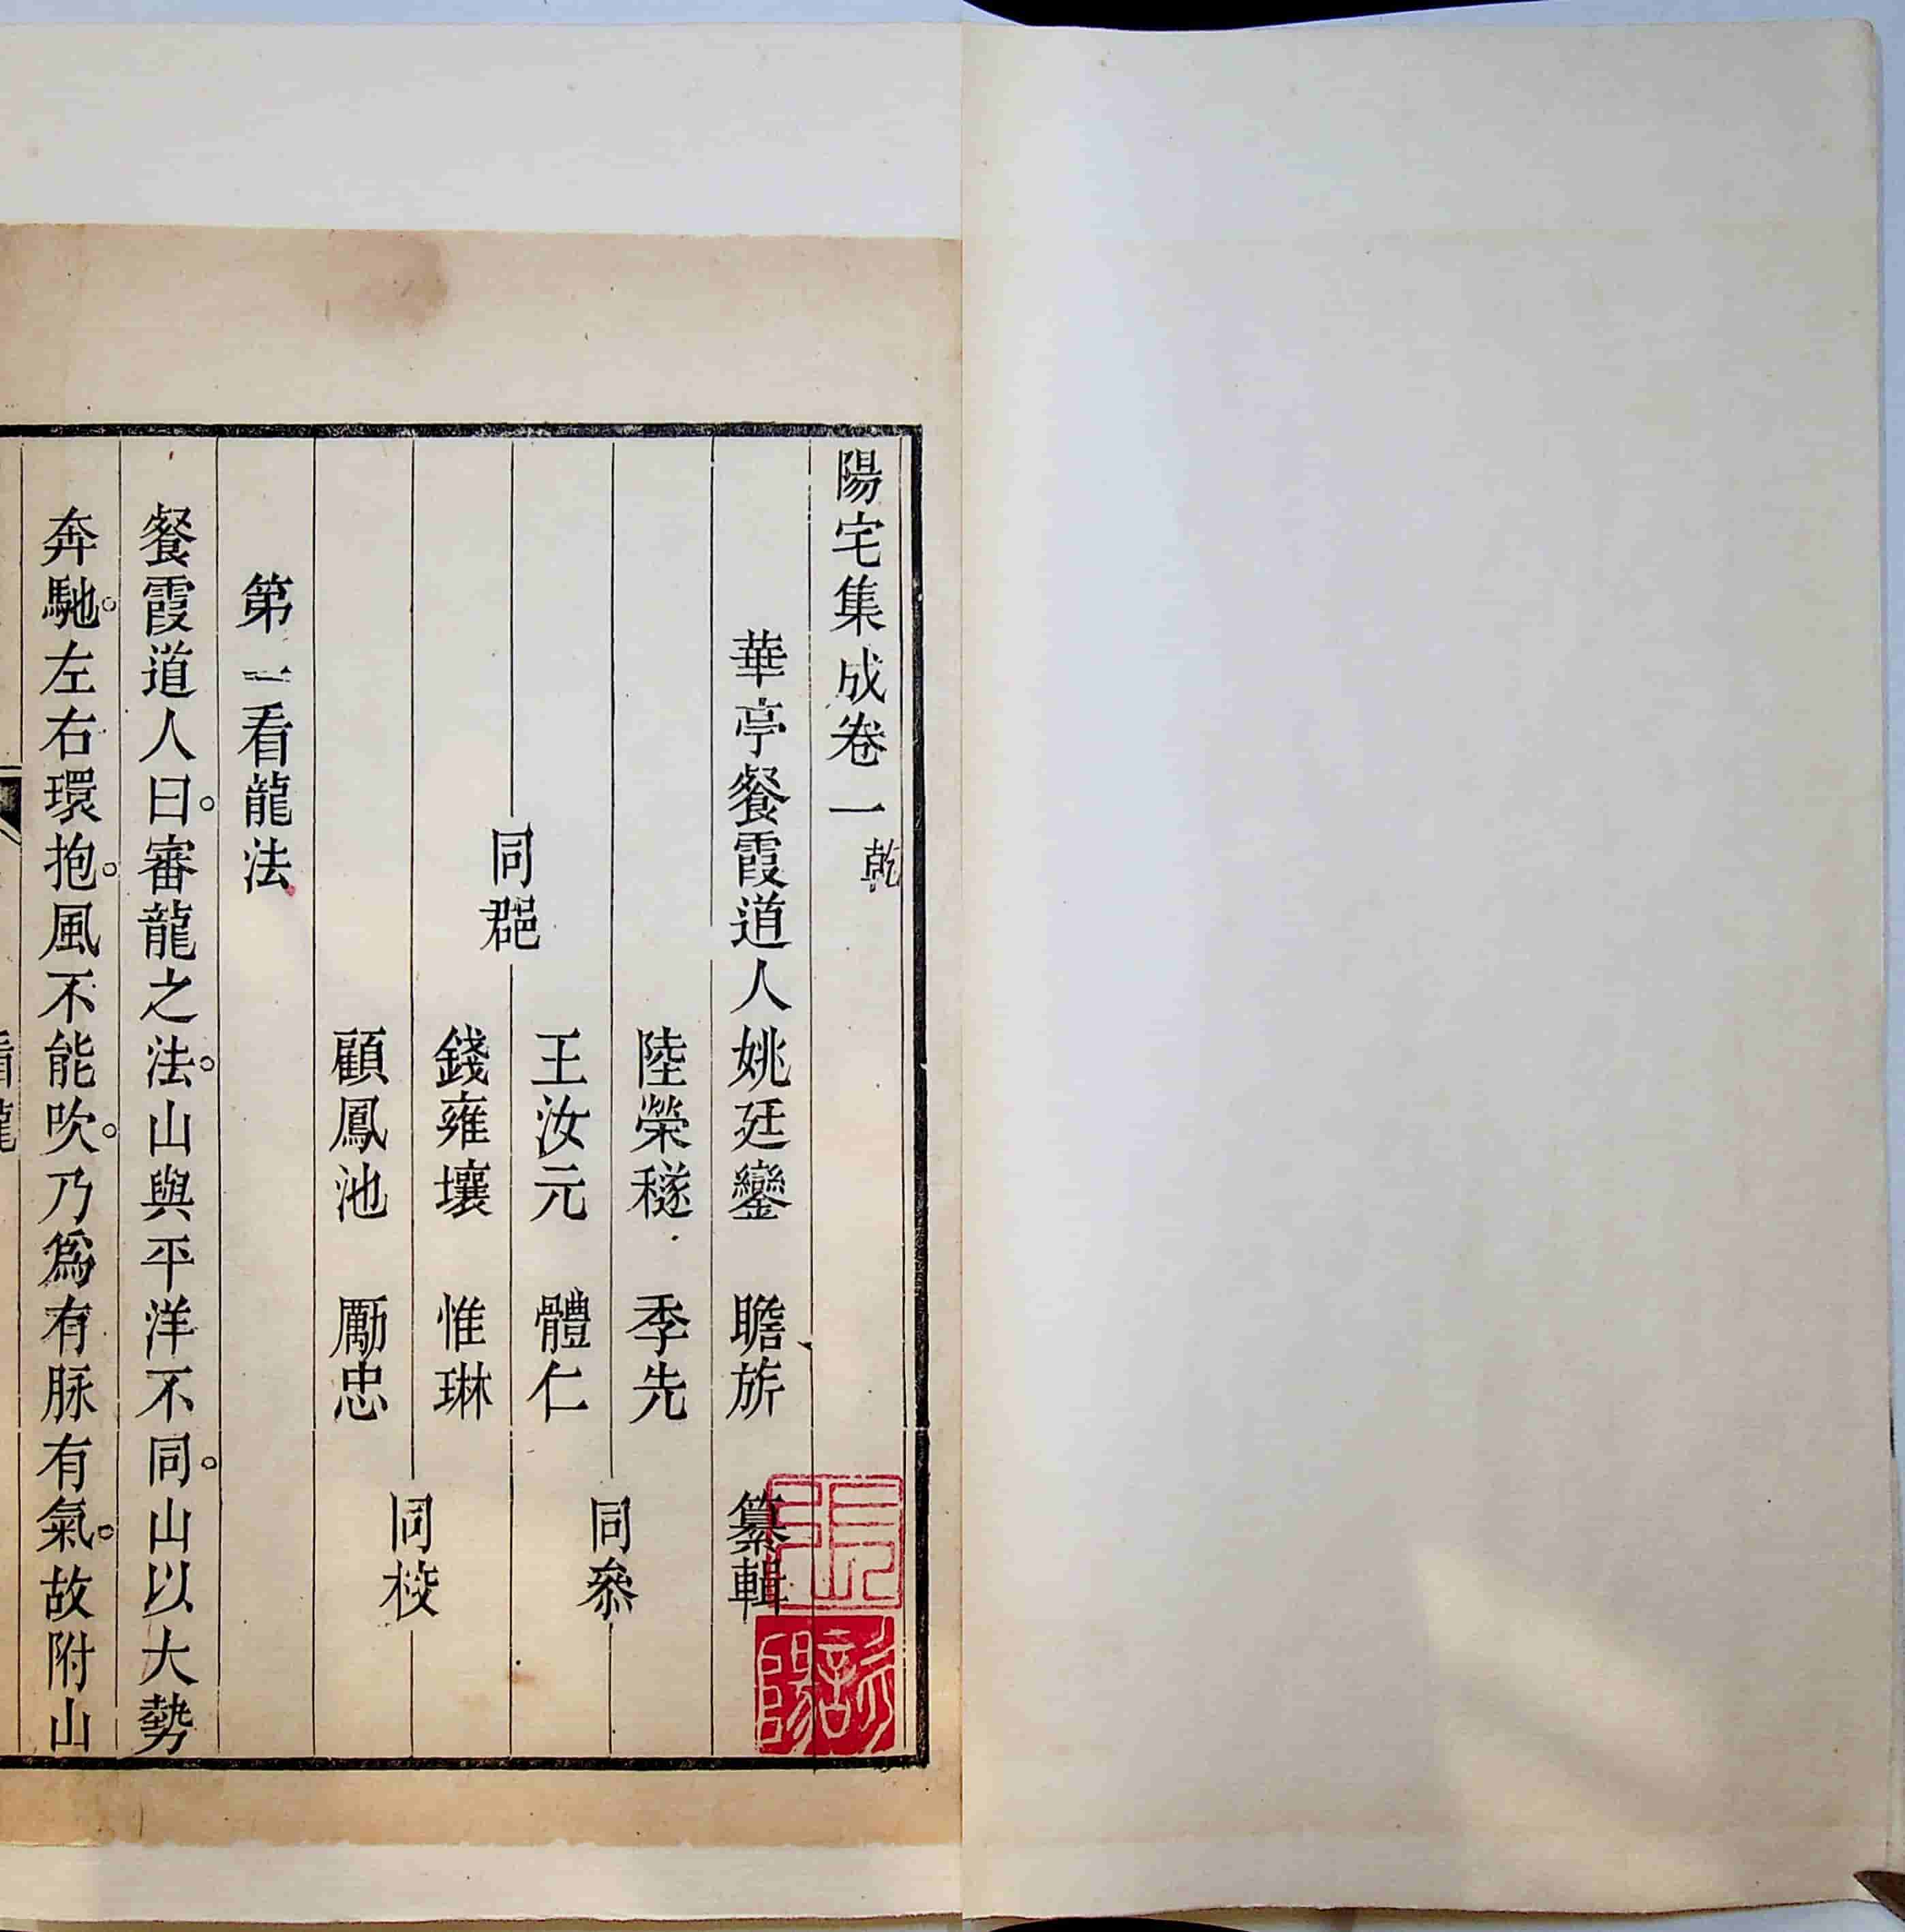 陽宅集成卷一 乾
華亭餐霞道人姚廷鑾 瞻旂 纂輯
陸榮穟 季先
王汝元 體仁
同叅
同郡
錢雍壤 惟琳
顧鳳池 勵忠
同校
第一看龍法
餐霞道人曰。審龍之法。山與平洋不同。山以大勢
奔馳。左右環抱。風不能吹。乃爲有脉有氣。故附山
看龍